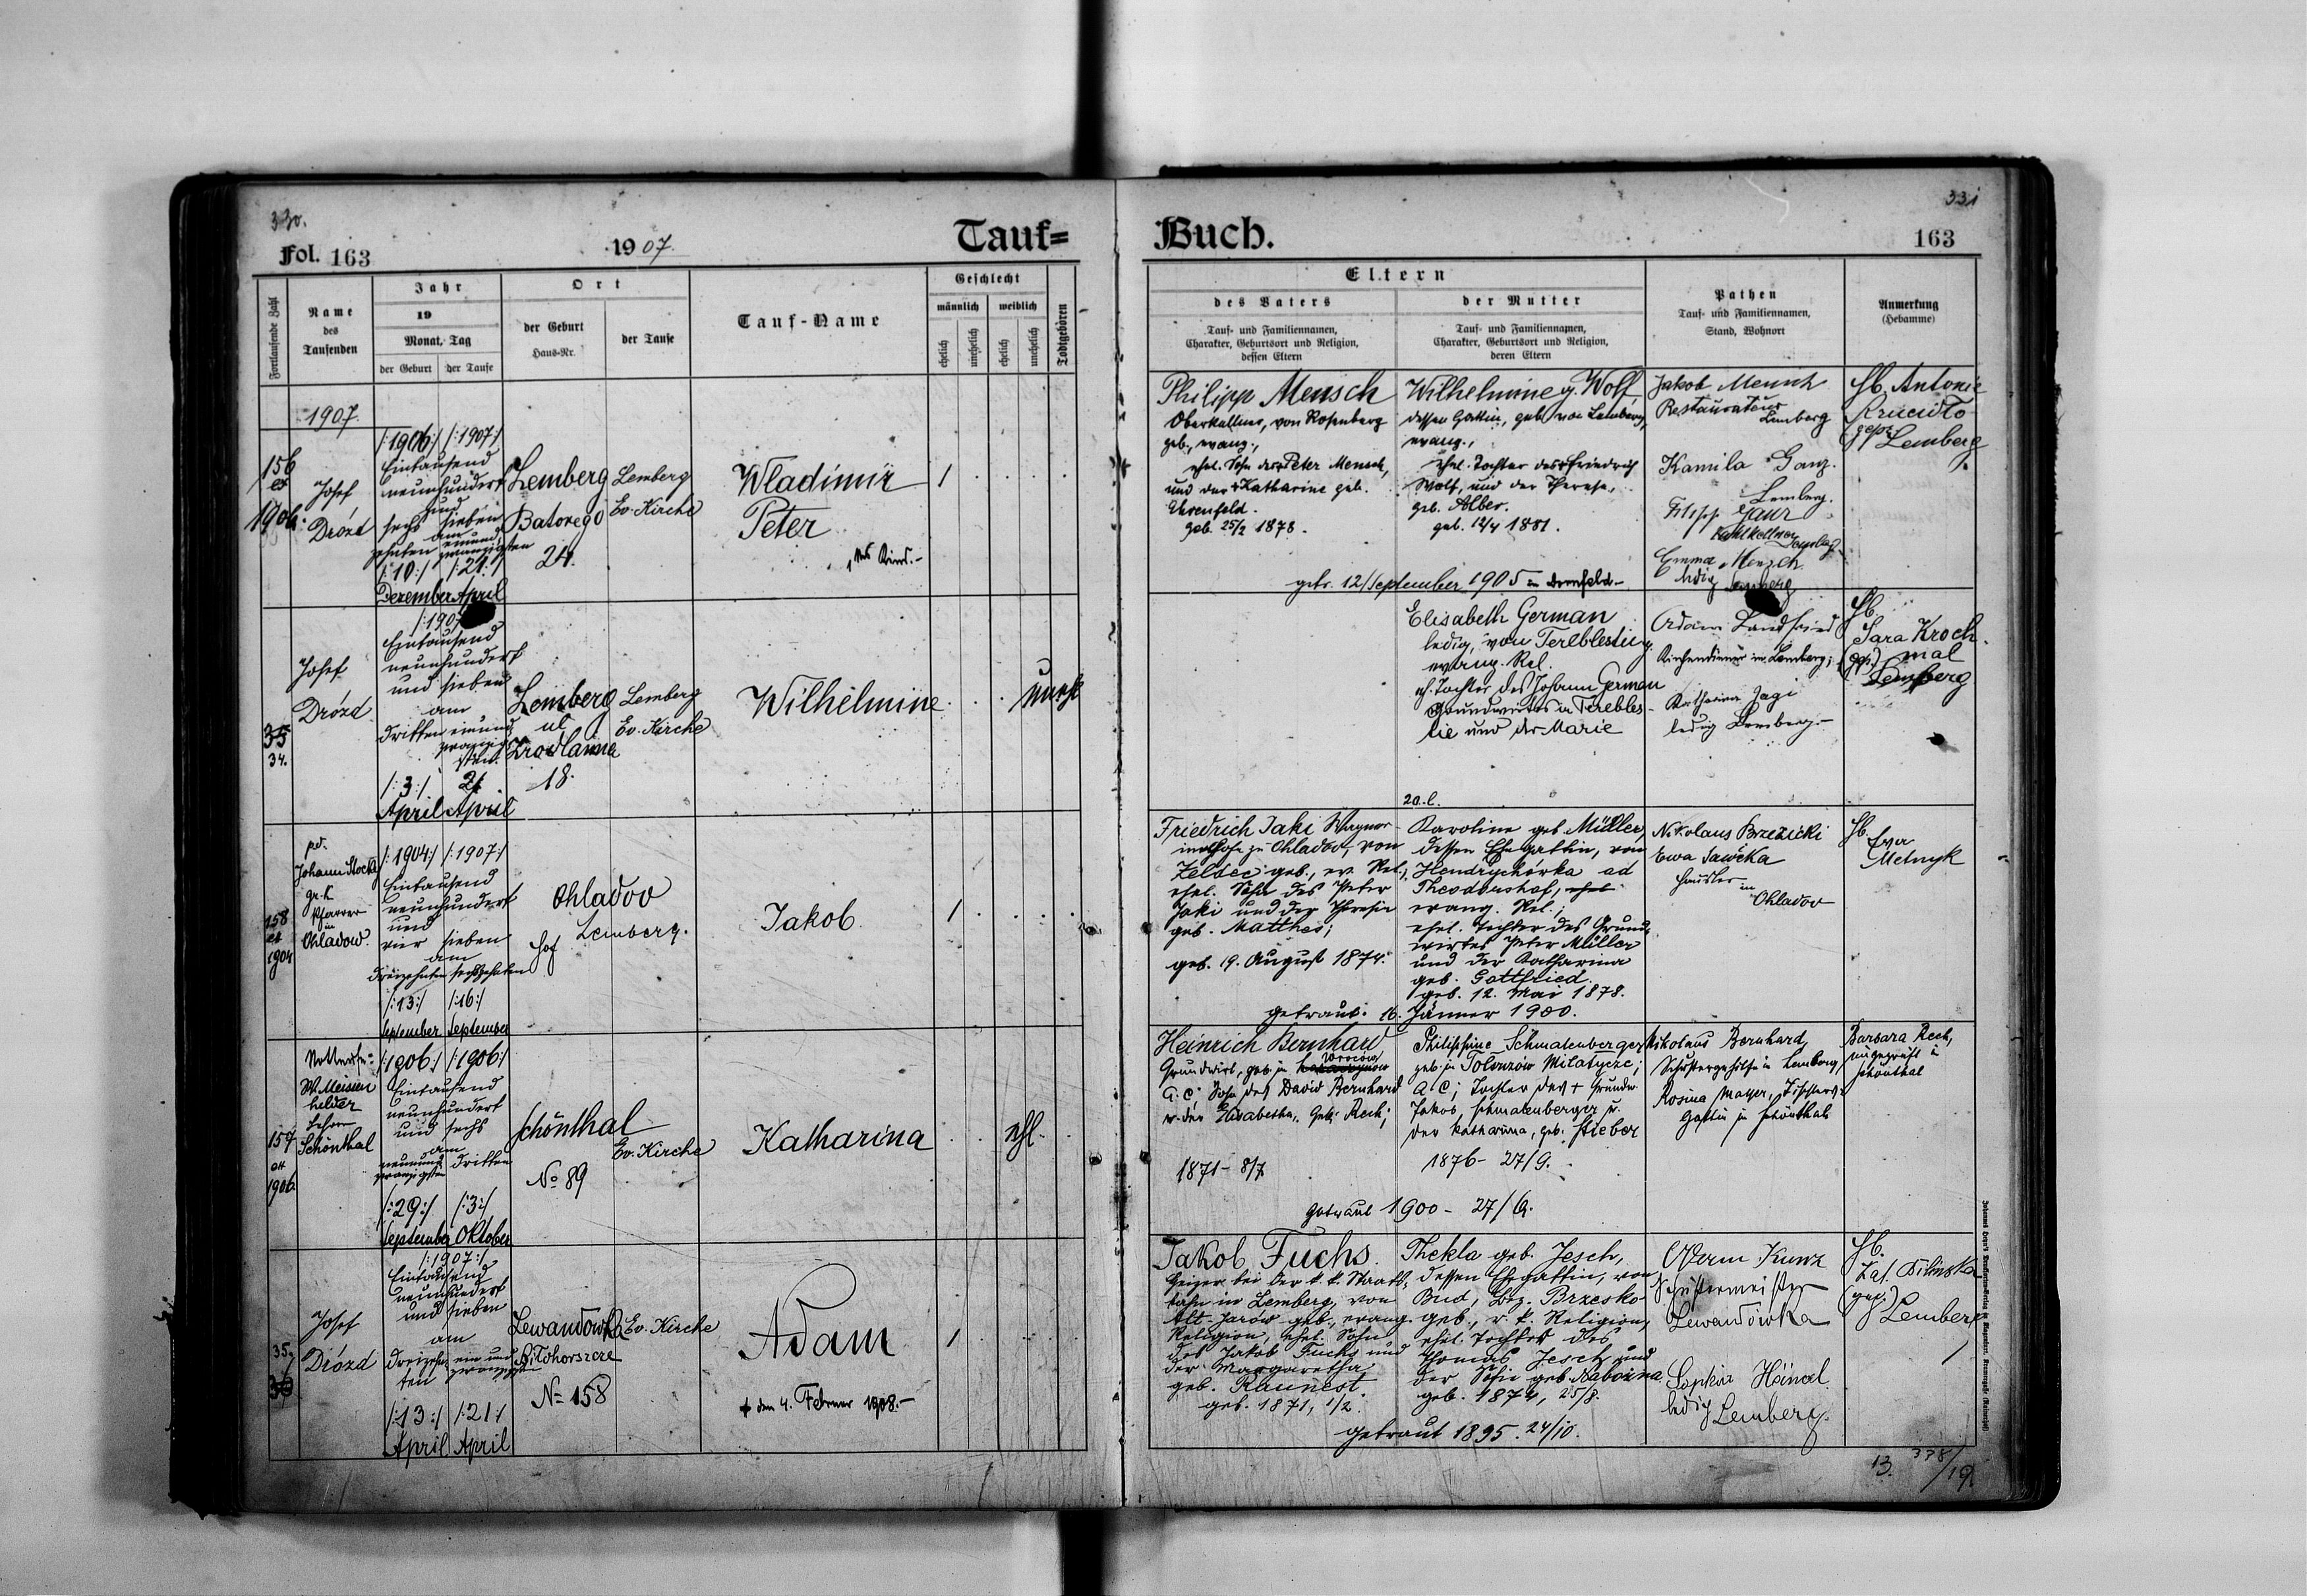 330.
Fol. 163
1907.
Tauf=
Fortlaufende Zahl
Name
des
Taufenden
Jahr
19
Monat, Tag
der Geburt
der Taufe
Ort
der Geburt
Haus-Nr.
der Taufe
Tauf-Name
Geschlecht
männlich
weiblich
ehelich
unehelich
ehelich
unehelich
Todtgeboren
1907.
156
ex
1906.
Josef
Drózd
/:1906:/ /:1907:/
Eintausend
neunhundert
und
sechs sieben
am
zehnten einund
zwanzigsten
/:10:/ /:21:/
Dezember April
Lemberg
Batorego
24.
Lemberg
Ev. Kirche
Wladimir
Peter
1
35
34.
Josef
Drózd
/:1907
Eintausend
neunhundert
und sieben
am
dritten einund
zwanzig
sten.
/:3:/ 21
April April
Lemberg
ul.
18.
Lemberg
Ev. Kirche
Wilhelmine
unehl
158
1904
Johann
gr. k.
Pfarrer
in
Ohladow.
/:1904:/ /:1907:/
Eintausend
neunhundert
und
vier sieben
am
dreizehnten sechszehnten
/:13:/ /:16:/
September September
Ohladov
hof
Lemberg.
Jakob
1
1906.
Lehrer
Schönthal
/:1906:/ /:1906:/
Eintausend
neunhundert
und sechs
am
neunund dritten
zwanzigsten
/:29:/ /:3:/
September Oktober
Schönthal
No 89
Ev. Kirche
Katharina
ehl.
35.
36
Josef
Drózd
/:1907:/
Eintausend
neunhundert
und sieben
am
dreizehn- ein und
ten zwanzigsten
/:13:/ /:21:/
April April
Lewandówka
Biłohorszcze
No 158
Ev. Kirche
Adam
† den 4. Februar 1908.-
1
331
Buch.
163
Eltern
des Vaters
Tauf- und Familiennamen,
Charakter, Geburtsort und Religion,
dessen Eltern
der Mutter
Tauf- und Familiennamen,
Charakter, Geburtsort und Religion,
deren Eltern
Pathen
Tauf- und Familiennamen,
Stand, Wohnort
Anmerkung
(Hebamme)
Philipp Mensch
Oberkellner, von Rosenberg
geb., evang.,
ehel. Sohn des Peter Mensch,
und der Katharine geb.
Ehrenfeld.
geb. 25/2 1878.
Wilhelmine g. Wolf
dessen Gattin, geb. von Lemberg,
evang.,
ehel. Tochter des Friedrich
Wolf, und der Therese,
geb. Alber.
geb. 12/4 1881.
getr. 12/September 1905 in Dornfeld.-
Jakob Mensch
Restaurateur
Lemberg
Kamila Ganz.
Lemberg.
Emma Mensch
ledig Lemberg
Hb. Antonie
gepr.
Lemberg
Elisabeth German
ledig, von Tereblestie,
evang. Rel.
eh. Tochter des Johann German
Grundwirtes in Terebles-
tie und der Marie
20. l.
Adam Landfried
Kirchendiener in Lemberg;
Katharina Jagi
ledig Lemberg.-
Hb.
Sara Kroch-
mal
Lemberg
Friedrich Jaki Wagner
im Hofe zu Ohladów, von
Zeldec geb., ev. Rel.,
ehel. Sohn des Peter
Jaki und der Theresia
geb. Matthes;
geb. 19. August 1874.
Karoline geb. Müller,
dessen Ehegattin, von
Hendrychówka ad
Theodorshof,
evang. Rel.;
ehel. Tochter des Grund-
wirtes Peter Müller
und der Katharina
geb. Gottfried.
geb. 12. Mai 1878.
getraut: 16. Jänner 1900.
Nikolaus Brzezicki
Ewa Sawcka
Häusler in
Ohladov
Hb.
Ewa
Melnyk
Heinrich Bernhard
Grundwirt, geb. in
A. C; Sohn des David Bernhard
u. der Elisabetha, geb. Rech;
1871 - 8/7
Philippine Schmalenberger
geb. in Milatycze;
A. C; Tochter des † Grundw.
Jakob Schmalenberger u.
der Katharina, geb. Stieber
1876 - 27/9.
getraut 1900 - 27/
Nikolaus Bernhard,
Schustergehilfe in Lemberg,
Rosina Mayer, Tischlers-
Gattin in Schönthal
Barbara Rech,
ungeprüft in
Schönthal
Jakob Fuchs.
Heizer bei der k. k. Staats-
bahn in Lemberg, von
Alt-Jarów geb., evang.
Religion, ehel. Sohn
des Jakob Fuchs und
der Margaretha
geb. Raunest.
geb. 1871, 1/2.
Thekla geb. Jesch,
dessen Ehegattin, von
Bud, Bez. Brzesko
geb., r. k. Religion,
ehel. Tochter des
Thomas Jesch und
der Sofie geb. Nabożna.
geb. 1874, 25/8.
getraut 1895. 24/10.
Adam Kunz
Schustermeister
Lewandówka
Sophia Heinzl
ledig Lemberg.
Hb.
Bilinska
Lemberg
13. 338/19